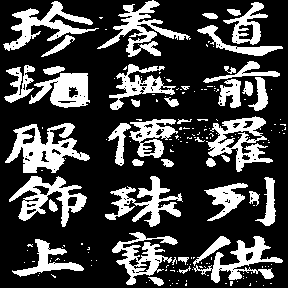 道前羅列供
養無價珠寶
珍玩服飾上